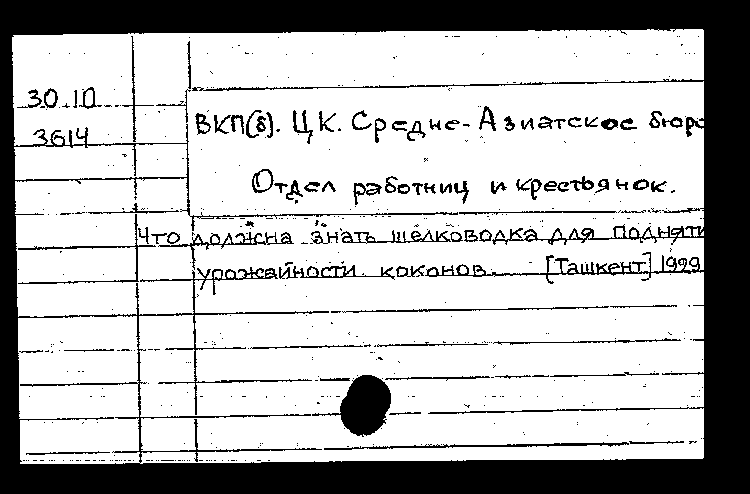 30.10
3614
ВКП(б). ЦК. Средне-Азиатское бюро
Отдел работниц и крестьянок.
Что должна знать шелководка для подняти
урожайности коконов. [Ташкент] 1929